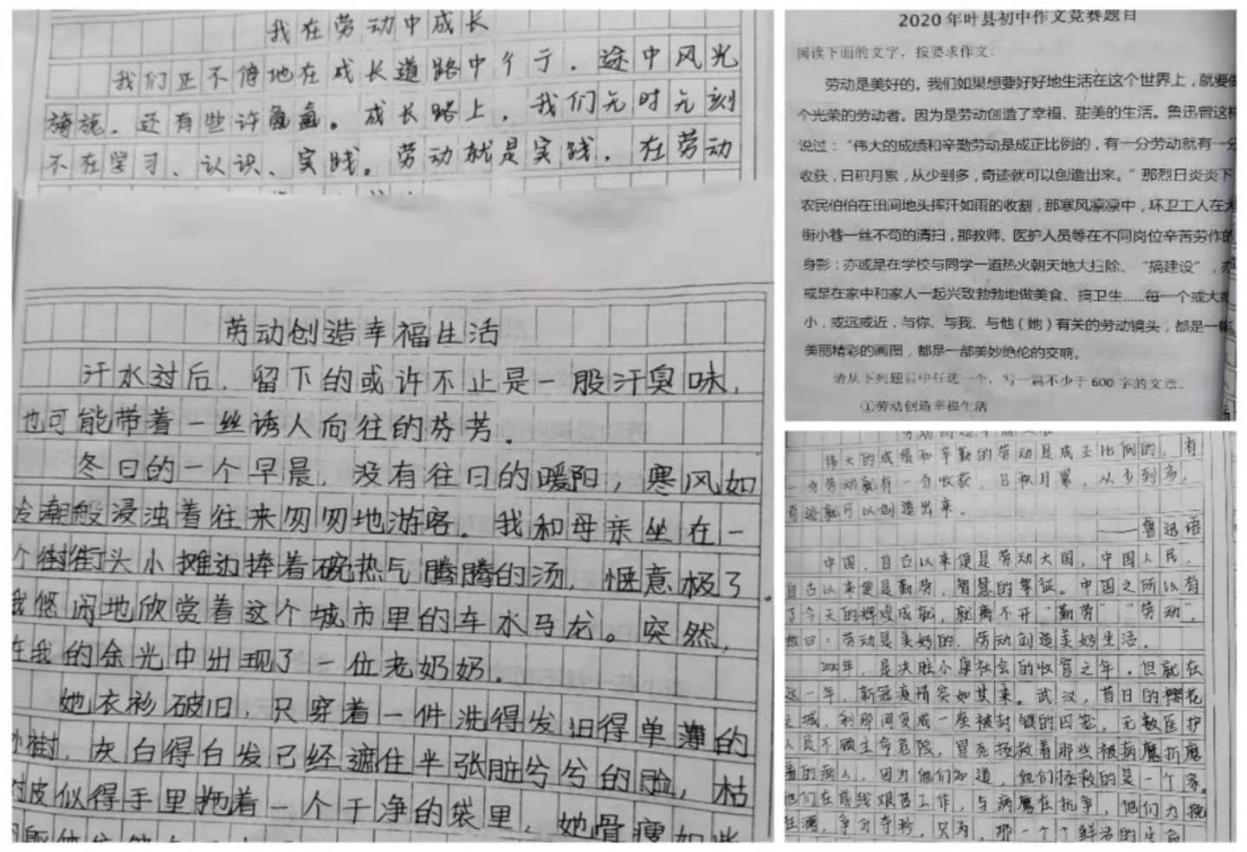 我在劳动中成长
我们正不停地在成长道路中彳亍。途中风光
旖旎，还有些许氤氲。成长路上，我们无时无刻
不在学习、认识、实践。劳动就是实践，在劳动
劳动创造幸福生活
汗水过后，留下的或许不止是一股汗臭味，
也可能带着一丝诱人向往的芬芳。
冬日的一个早晨，没有往日的暖阳，寒风如
冷潮般浸浊着往来匆匆地游客。我和母亲坐在一
个街头小摊边捧着碗热气腾腾的汤，惬意极了。
我悠闲地欣赏着这个城市里的车水马龙。突然，
在我的余光中出现了一位老奶奶。
她衣衫破旧，只穿着一件洗得发旧得单薄的
灰白得白发已经遮住半张脏兮兮的脸，枯
树皮似得手里拖着一个干净的袋里，她骨瘦如柴
2020年叶县初中作文竞赛题目
阅读下面的文字，按要求作文：
劳动是美好的。我们如果想要好好地生活在这个世界上，就要做
个光荣的劳动者。因为是劳动创造了幸福、甜美的生活。鲁迅曾这样
说过：“伟大的成绩和辛勤劳动是成正比例的，有一分劳动就有一分
收获，日积月累，从少到多，奇迹就可以创造出来。”那烈日炎炎下，
农民伯伯在田间地头挥汗如雨的收割，那寒风凛凛中，环卫工人在大
街小巷一丝不苟的清扫，那教师、医护人员等在不同岗位辛苦劳作的
身影；亦或是在学校与同学一道热火朝天地大扫除、“搞建设”，亦
或是在家中和家人一起兴致勃勃地做美食、搞卫生……每一个或大或
小，或远或近，与你、与我、与他（她）有关的劳动镜头，都是一幅
美丽精彩的画图，都是一部美妙绝伦的交响。
请从下列题目中任选一个，写一篇不少于600字的文章。
①劳动创造幸福生活
伟大的成绩和辛勤的劳动是成正比例的，有
一分劳动就有一分收获，日积月累，从少到多，
奇迹就可以创造出来。
——鲁迅语
中国，自古以来便是劳动大国，中国人民，
自古以来便是勤劳，智慧的象征。中国之所以有
了今天的辉煌成就，就离不开“勤劳”“劳动”，
曰：劳动是美好的，劳动创造美好生活。
2020年，是决胜小康社会的收官之年，但就在
这一年，新冠疫情突如其来。武汉，昔日的樱花
之城，刹那间变成一座被封锁的囚笼，无数医护
人员不顾生命危险，冒死拯救着那些被病魔折磨
着的病人，因为他们知道，他们拯救的是一个家。
他们在前线艰苦工作，与病魔在抗争，他们力挽
狂澜，争分夺秒，只为，那一个个鲜活的生命